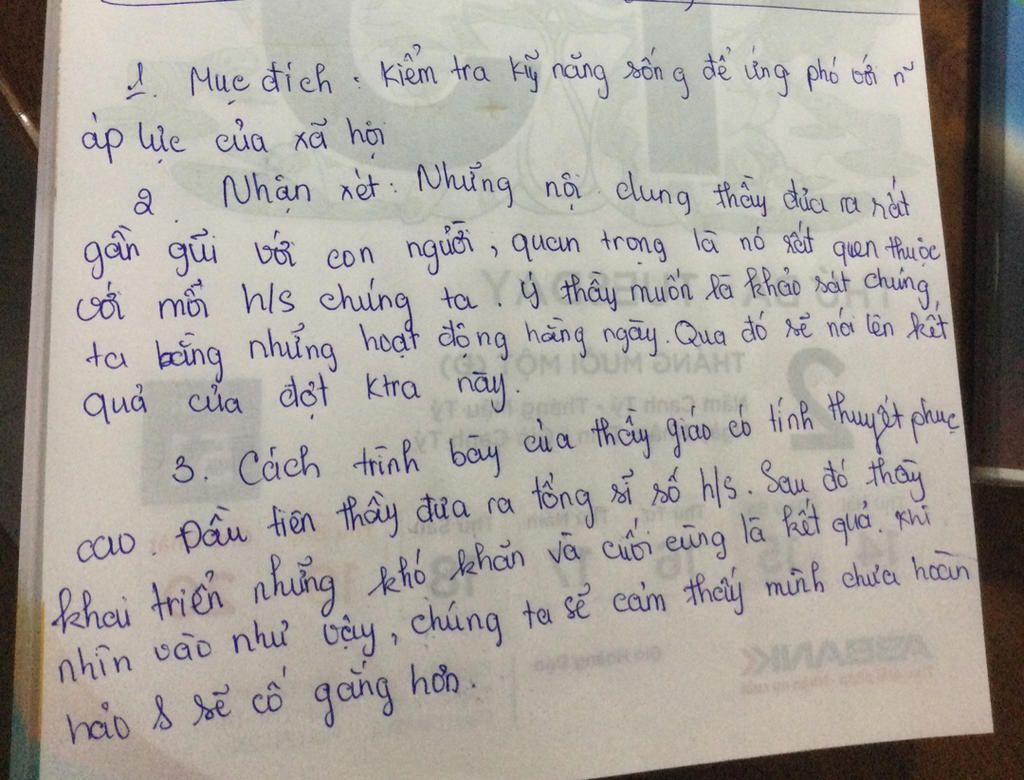 1. Mục đích : Kiểm tra kỹ năng sống để ứng phó với n~
áp lực của xã hội
2. Nhận xét : Những nội dung thầy đưa ra rất
gần gũi với con người, quan trọng là nó rất quen thuộc
với mỗi h/s chúng ta. Ý thầy muốn là khảo sát chúng
ta bằng những hoạt động hằng ngày. Qua đó sẽ nói lên kết
quả của đợt ktra này.
3. Cách trình bày của thầy giáo có tính thuyết phục
cao Đầu tiên thầy đưa ra tổng sĩ số h/s. Sau đó thầy
khai triển những khó khăn và cuối cùng là kết quả. Khi
nhìn vào như vậy, chúng ta sẽ cảm thấy mình chưa hoàn
hảo & sẽ cố gắng hơn.
THỨ BA TUESDAY
2
THÁNG MƯỜI MỘT (Đ)
ABBANK